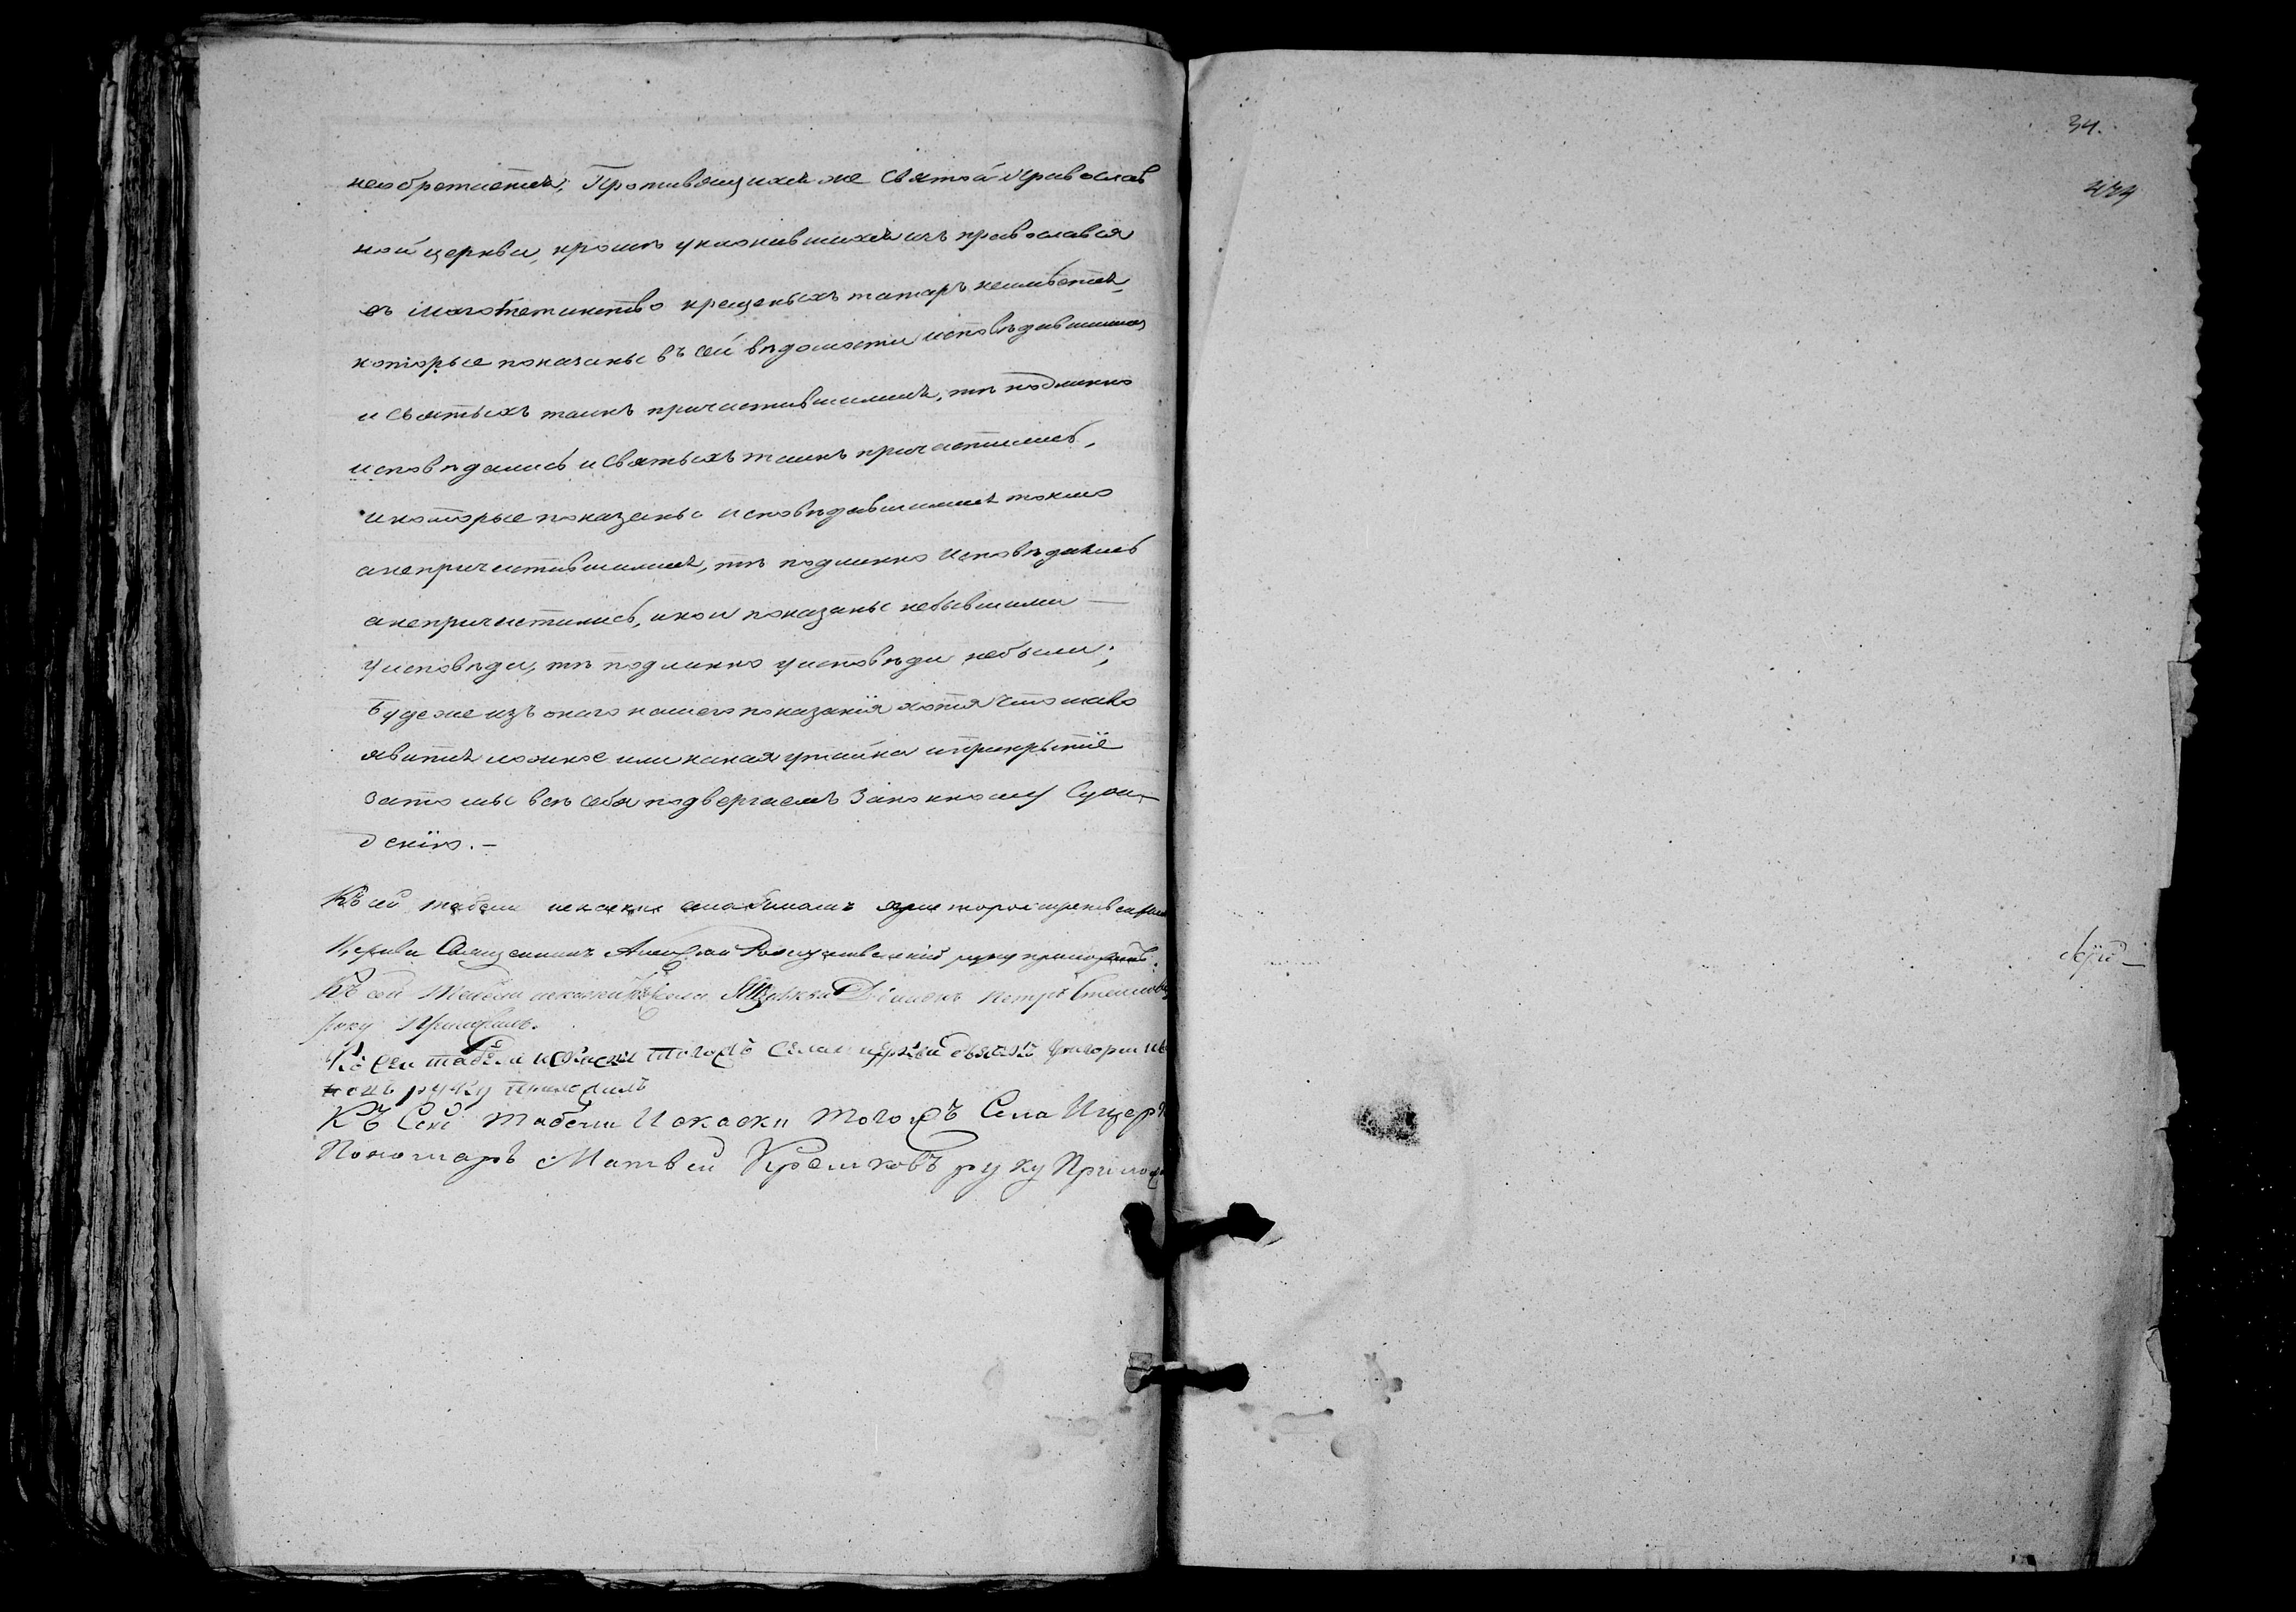 необретается; Противящихся же святой православ
ной церкви, кромѣ уклонившихся изъ православія
въ магометинство крещеныхъ татаръ неимѣется,
которые показаны въ сей вѣдомости исповѣдавшимися
и святыхъ таинъ причастившимися, тѣ подлинно
исповѣдались и святыхъ таинъ причастились,
и которые показаны исповѣдавшимися токмо
а непричастившимися, тѣ подлинно исповѣдались
а непричастились, и кои показаны небывшими —
у исповѣди, тѣ подлинно у исповѣди небыли;
Буде же изъ онаго нашего показанія хотя что мало
явится ложное или какая утайка и прикрытіе
за то мы всѣ себя подвергаемъ Законному Суж-
денію. —
Къ сей табели исказки села
Церкви Священникъ Алексей Рождественский руку приложилъ.
Къ сей Табели исказки Села Церкви Діаконъ Петръ
руку Приложилъ.
Къ сей табели исказки тогожъ Села и церкви дьячокъ Григорий
руку приложилъ
Къ Сей табели Исказки тогожъ Села Ицер
Пономарь Матвей Кремковъ руку Прилож
34.
474